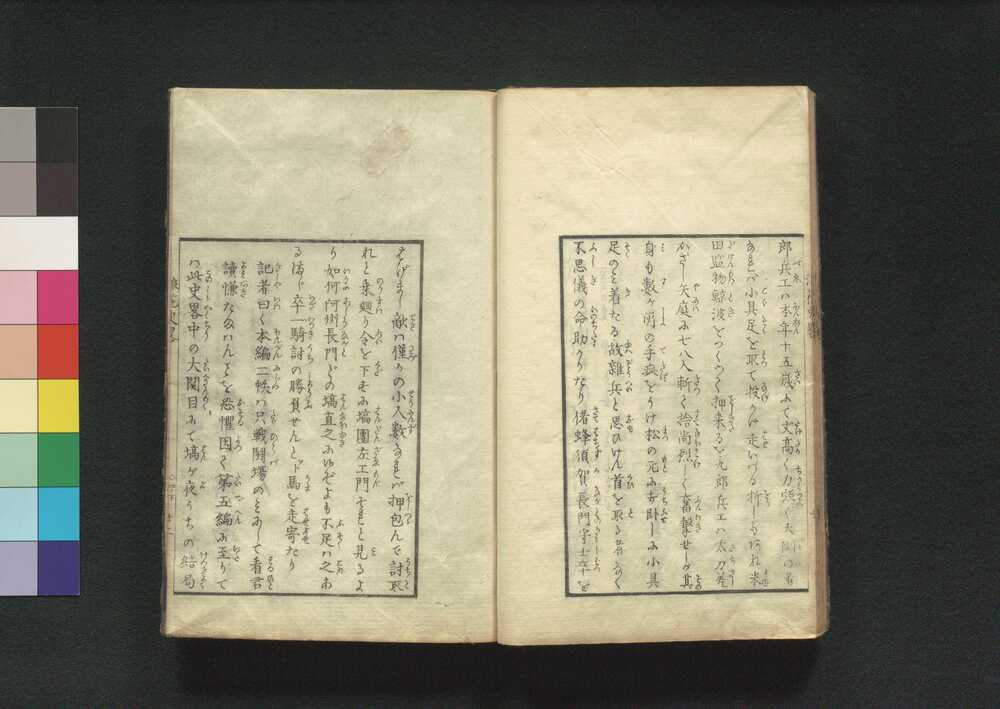 郎兵エハ本年十五歳にて丈高く力強く大胆の者
あれバ小具足を取て投かけ走いづる折しもあれ米
田監物鯨波をつくつて押来るを九郎兵エハ太刀差
かざし矢庭に七八人斬て捨尚烈しく奮撃せしが其
身も数ヶ所の手疵をうけ松の元に倒臥しに小具
足のミ着たる故雑兵と思ひけん首を取る者なく
不思儀の命助かりたり偖蜂須賀長門守士卒を
はげまし敵ハ僅かの小人数なれバ押包んで討取
れと乗廻り令を下すに塙團左エ門それと見るよ
り如何阿州長門どの塙直之にゆぞよも不足ハあ
る防じ卒一騎討の勝負せんと下馬を走寄たり
記者曰く本編二帙ハ只戦闘場のミにして看君
讀慊たなハんことを恐懼因て第五編に至りて
ハ此史畧中の大関目にて塙が夜うちの結局